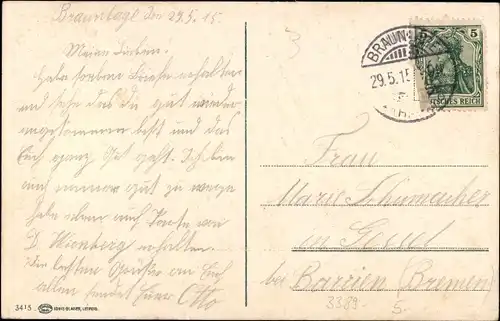 Braunlage den 29.5.15.
Meine Lieben!
Habe soeben Karte erhalten
und sehe das du gut wieder
angekommen bist und das
Euch ganz Gut geht.
auch immer gut zu
habe aber auch Karte von
D. Wienberg erhalten.
Die besten Grüße an Euch
allen sendet Euer Otto
3415
LEIPZIG.
BRAUNLAGE
29.5.15
5
DEUTSCHES REICH
Frau
Marie Schumacher
in
bei Barrien (Bremen)
3389
5.-
3